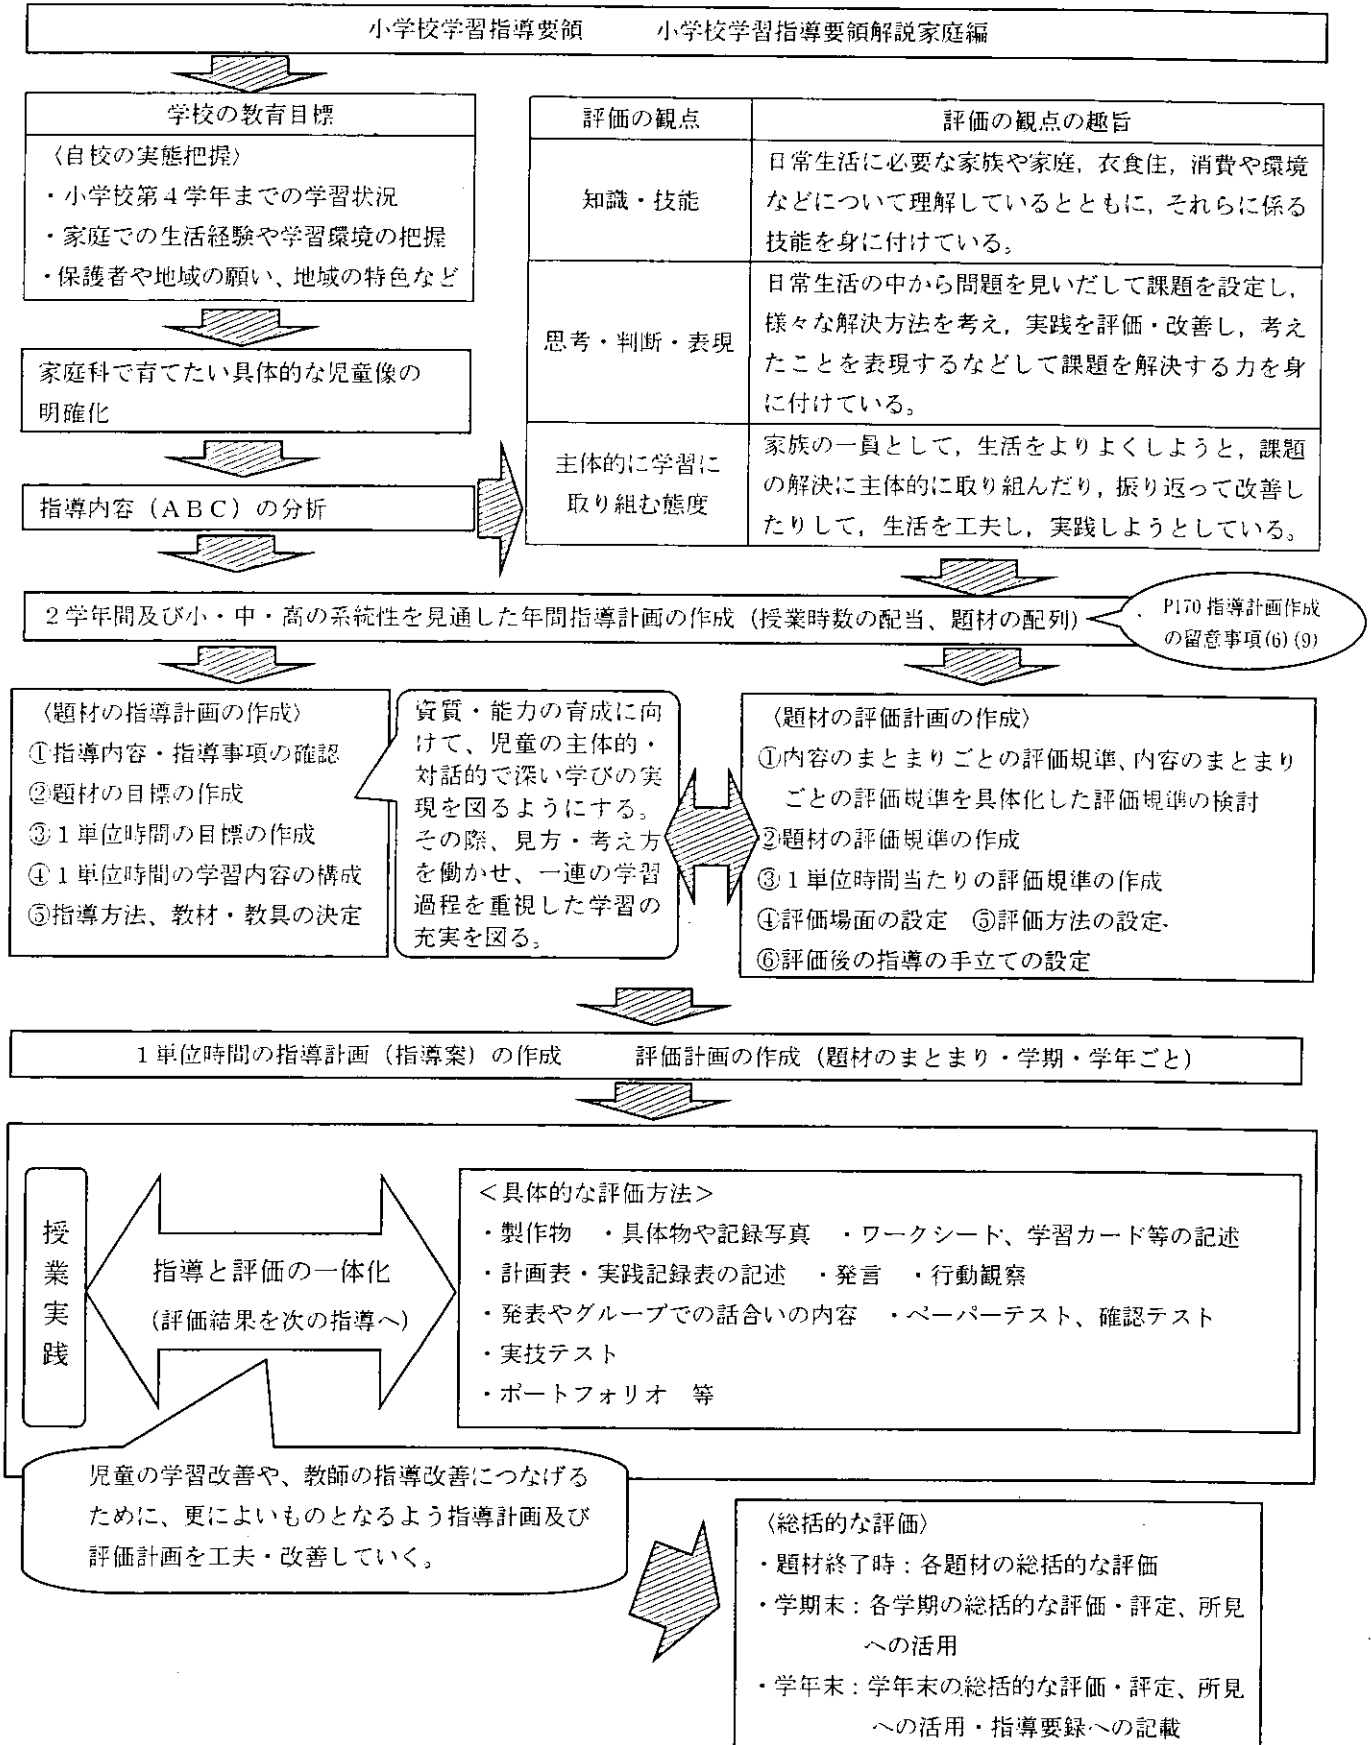 小学校学習指導要領　　小学校学習指導要領解説家庭編
学校の教育目標
〈自校の実態把握〉
・小学校第４学年までの学習状況
・家庭での生活経験や学習環境の把握
・保護者や地域の願い、地域の特色など
家庭科で育てたい具体的な児童像の
明確化
指導内容（ＡＢＣ）の分析
評価の観点　評価の観点の趣旨
知識・技能
日常生活に必要な家族や家庭，衣食住，消費や環境
などについて理解しているとともに，それらに係る
技能を身に付けている。
思考・判断・表現
日常生活の中から問題を見いだして課題を設定し，
様々な解決方法を考え，実践を評価・改善し，考え
たことを表現するなどして課題を解決する力を身
に付けている。
主体的に学習に
取り組む態度
家族の一員として，生活をよりよくしようと，課題
の解決に主体的に取り組んだり，振り返って改善し
たりして，生活を工夫し，実践しようとしている。
２学年間及び小・中・高の系統性を見通した年間指導計画の作成（授業時数の配当、題材の配列）
P170 指導計画作成
の留意事項(6)(9)
〈題材の指導計画の作成〉
①指導内容・指導事項の確認
②題材の目標の作成
③１単位時間の目標の作成
④１単位時間の学習内容の構成
⑤指導方法、教材・教具の決定
資質・能力の育成に向
けて、児童の主体的・
対話的で深い学びの実
現を図るようにする。
その際、見方・考え方
を働かせ、一連の学習
過程を重視した学習の
充実を図る。
〈題材の評価計画の作成〉
①内容のまとまりごとの評価規準、内容のまとまり
ごとの評価規準を具体化した評価規準の検討
②題材の評価規準の作成
③１単位時間当たりの評価規準の作成
④評価場面の設定　⑤評価方法の設定
⑥評価後の指導の手立ての設定
１単位時間の指導計画（指導案）の作成　　評価計画の作成（題材のまとまり・学期・学年ごと）
授業実践
指導と評価の一体化
（評価結果を次の指導へ）
＜具体的な評価方法＞
・製作物　・具体物や記録写真　・ワークシート、学習カード等の記述
・計画表・実践記録表の記述　・発言　・行動観察
・発表やグループでの話合いの内容　・ペーパーテスト、確認テスト
・実技テスト
・ポートフォリオ　等
児童の学習改善や、教師の指導改善につなげる
ために、更によいものとなるよう指導計画及び
評価計画を工夫・改善していく。
〈総括的な評価〉
・題材終了時：各題材の総括的な評価
・学期末：各学期の総括的な評価・評定、所見
への活用
・学年末：学年末の総括的な評価・評定、所見
への活用・指導要録への記載